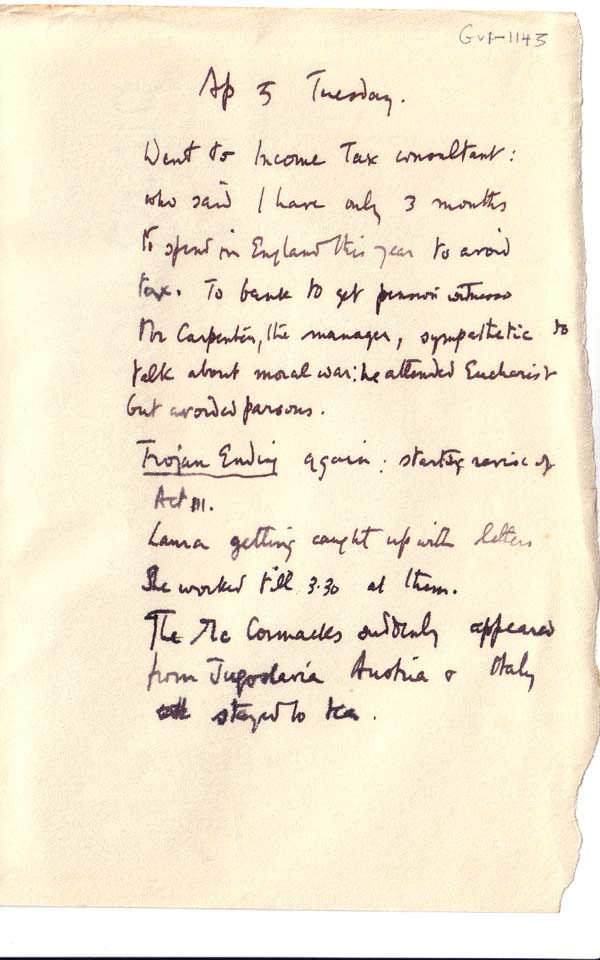 Gvt-1143
Ap 5 Tuesday.
Went to Income Tax consultant:
who said I have only 3 months
to spend in England this year to avoid
tax. To bank to get pension witnessed
Mr Carpenter, the manager, sympathetic to
talk about moral war: he attended Eucharist
but avoided parsons.
Trojan Ending again: starting revise of
Act III.
Laura getting caught up with letters
She worked till 3.30 at them.
The McCormacks suddenly appeared
from Jugoslavia Austria & Italy
stayed to tea.